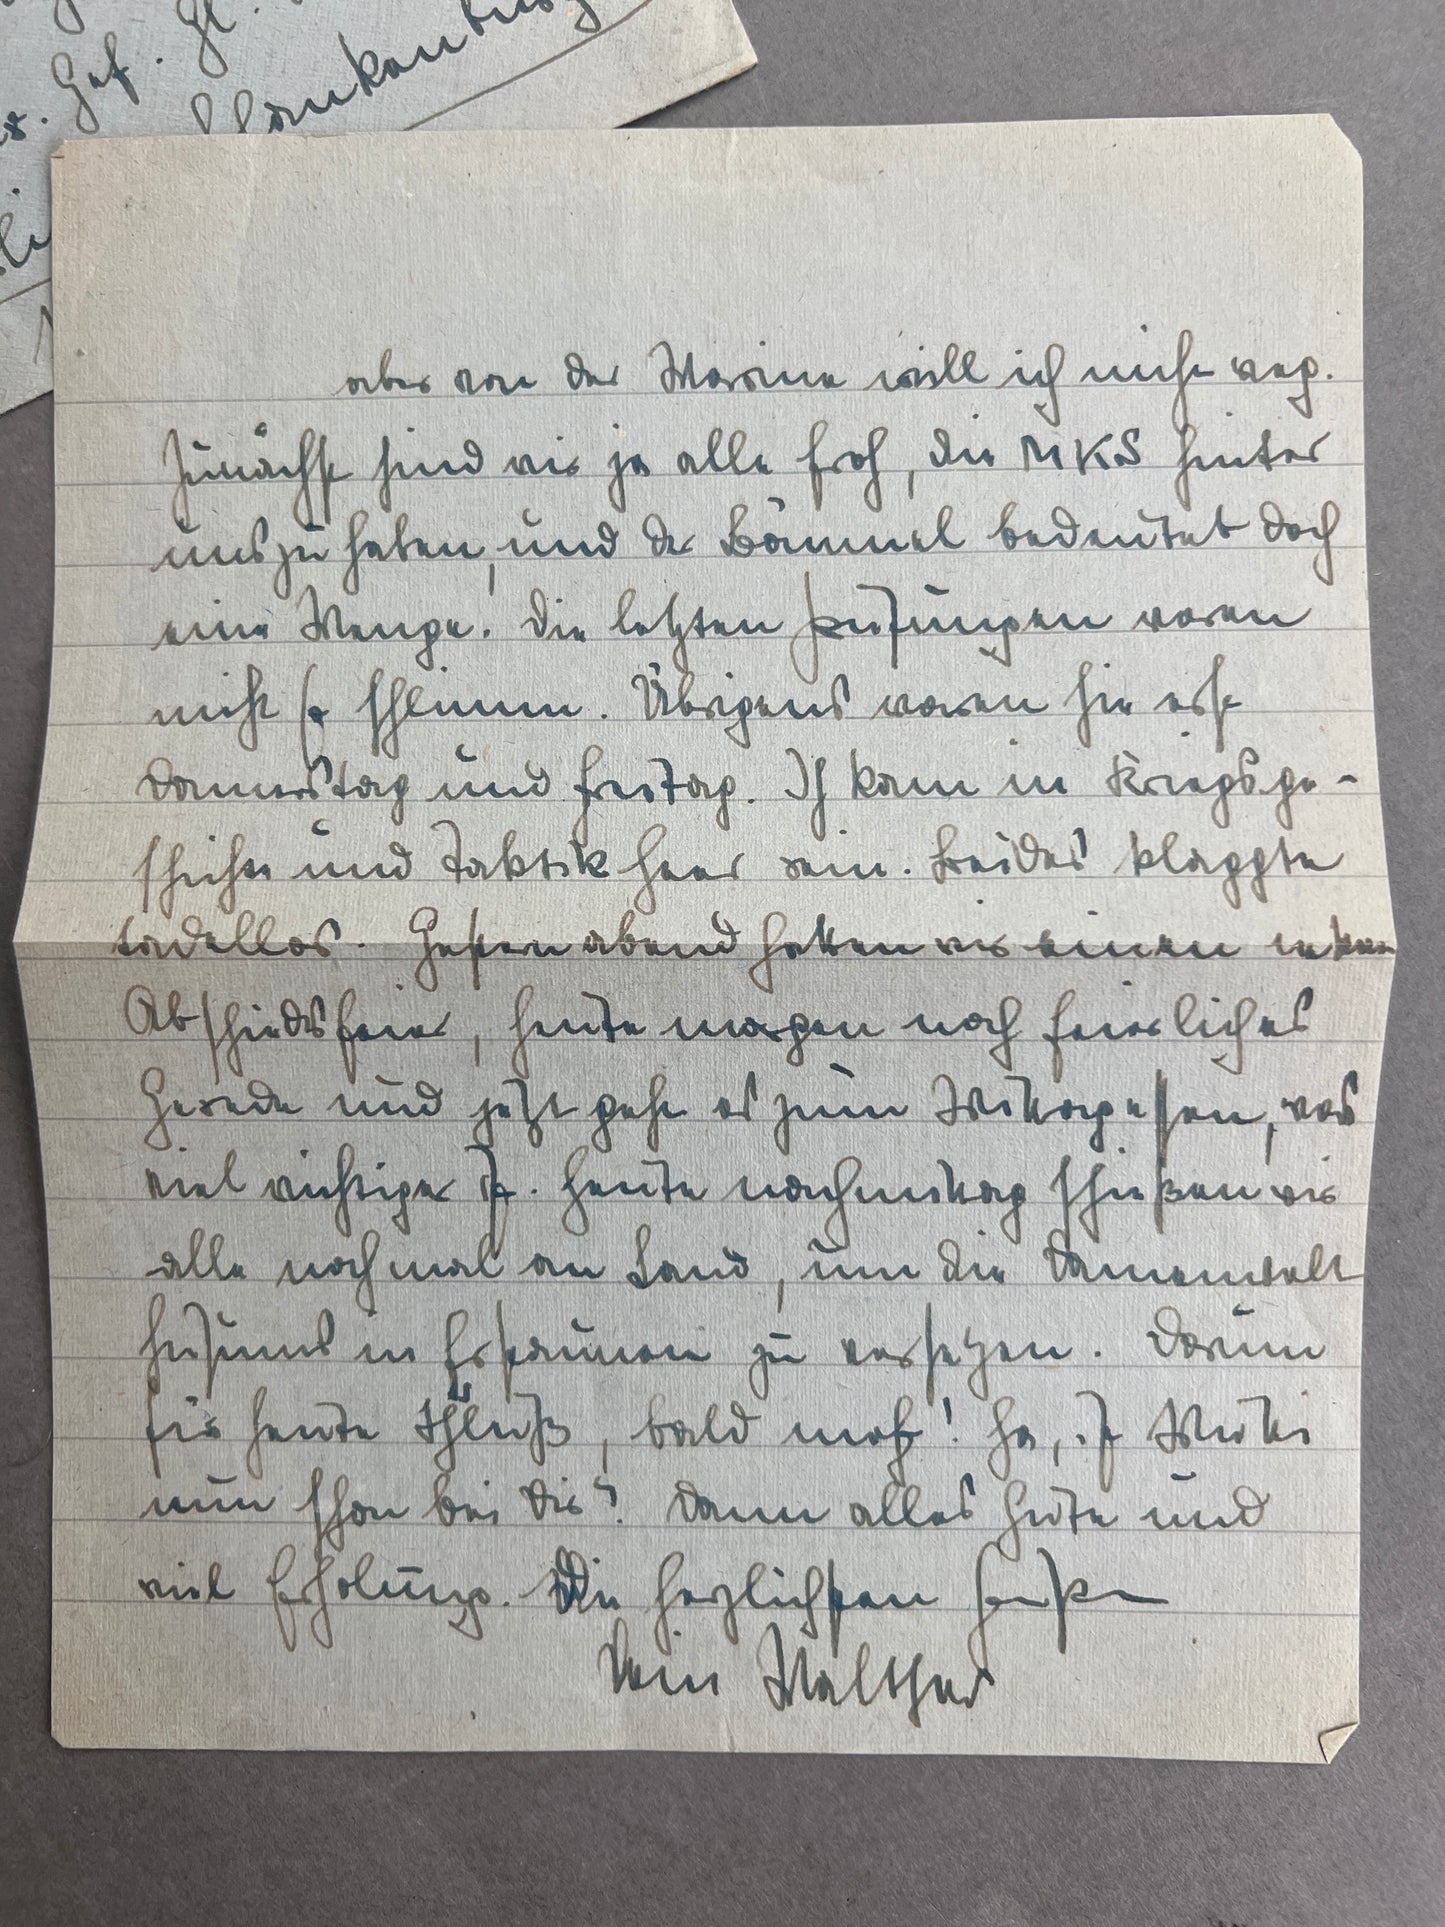 Gef. Gl.
aber von der Marine will ich nicht weg.
Zunächst sind wir ja alle froh, die MKS hinter
uns zu haben, und der Bömmel bedeutet doch
eine Menge. Die letzten Prüfungen waren
nicht so schlimm. Übrigens waren sie erst
Donnerstag und Freitag. Ich kam in Kriegsge-
schichte und Taktik Heer rein. Beides klappte
tadellos. Gestern abend hatten wir einen
Abschiedsfeier, heute morgen noch feierliches
Gerede und jetzt geht es zum Mittagessen, was
viel wichtiger ist. Heute nachmittag schießen wir
alle noch mal an Land, um die Damenwelt
Husums in Erstaunen zu versetzen. Darum
für heute Schluß, bald mehr! Ha, ist Mutti
nun schon bei Dir? Dann alles Gute und
viel Erholung. Die herzlichsten
Dein Walther